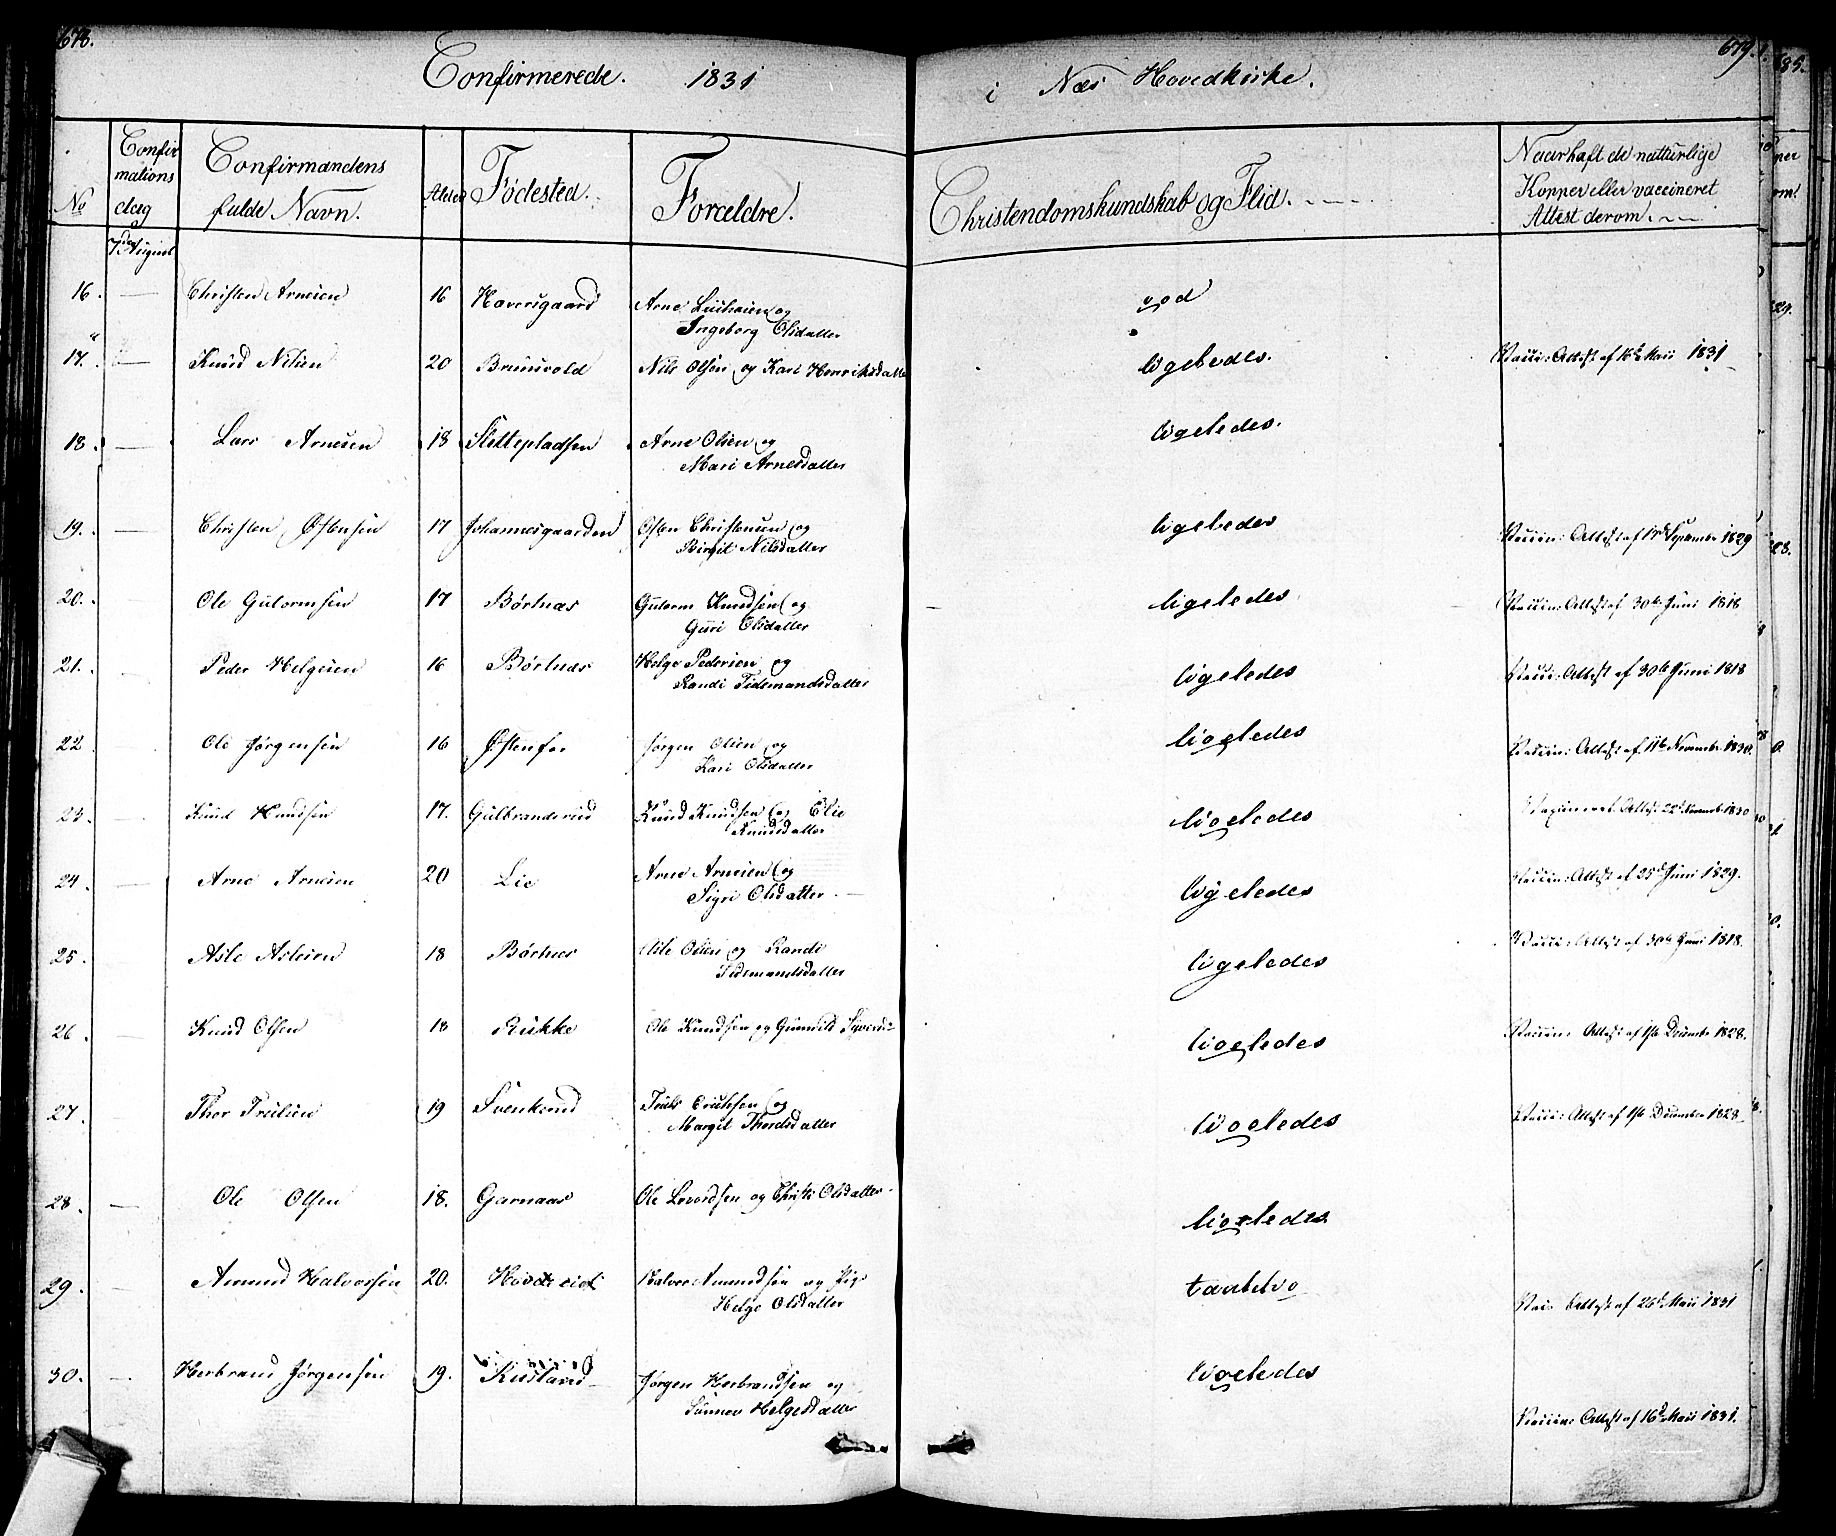 678.
679.
Confirmerede. 1831
i Næs Hovedkirke.
No
Confir
mations
dag
Confirmandens
fulde Navn.
Alder
Fødested.
Forældre.
Christendomskundskab og Flid.
Naar haft de naturlige
Kopper eller vaccineret
Attest derom.
7de August
16. Christen Arnesen 16 Haversgaard Arne
Ingeborg Olsdatter
god
17. Knud Nilsen 20 Bruuvold Nils Olsen og Kari Henriksdatter ligeledes. Vacci: Attest af 16de Maii 1831
18. Lars Arnesen 18 Slettepladsen Arne Olsen og
Mari Arnesdatter
ligeledes.
19. Christen Østensen 17 Johannesgaarden Østen Christensen og
Birgit Nilsdatter
ligeledes Vaccin: Attest af September 1829
20. Ole Gulormsen 17 Børtnæs Gulorm Knudsen og
Guri Olsdatter
ligeledes Vaccin: Attest af 30te Juni 1818
21. Peder Helgesen 16 Børtnæs Helge Pedersen og
Randi Tidemandsdatter
ligeledes Vacci: Attest af 30te Juni 1818
22 Ole Jørgensen 16 Østenfor Jørgen Olsen og
Kari Olsdatter
ligeledes Vaccin: Attest af 11te November 1830.
23. Knud Knudsen 17. Gulbrandsrud Knud Knudsen og Elie
Knudsdatter
ligeledes Vaxineret Attest 22de November 1830
24. Arne Arnesen 20 Lie Arne Arnesen og
Sigri Olsdatter
ligeledes Vaccin: Attest af 25de Juni 1829.
25. Asle Aslesen 18 Børtnæs Asle Olsen og Randi
Tidemandsdatter
ligeledes Vacci: Attest af 30te Juni 1818.
26. Knud Olsen 18 Rukke Ole Knudsen og Gunnild Syversd:
ligeledes Vaccin: Attest af 1ste December 1828.
27. Thor Trulsen 19 Svenkerud Truls Erichsen og
Margit Thordsdatter
ligeledes Vacci: Attest af 1ste December 1828
28. Ole Olsen 18. Garnaas Ole Levordsen og Christi Olsdatter
ligeledes
29. Amund Halvorsen 20. Halvor Amundsen og Pige
Helge Olsdatter
taalelig Vac: Attest af 26de Maii 1831
30. Herbrand Jørgensen 19. Jørgen Herbrandsen og
Sünnev Helgesdatter
ligeledes
Vaccin: Attest af 16de Maii 1831.